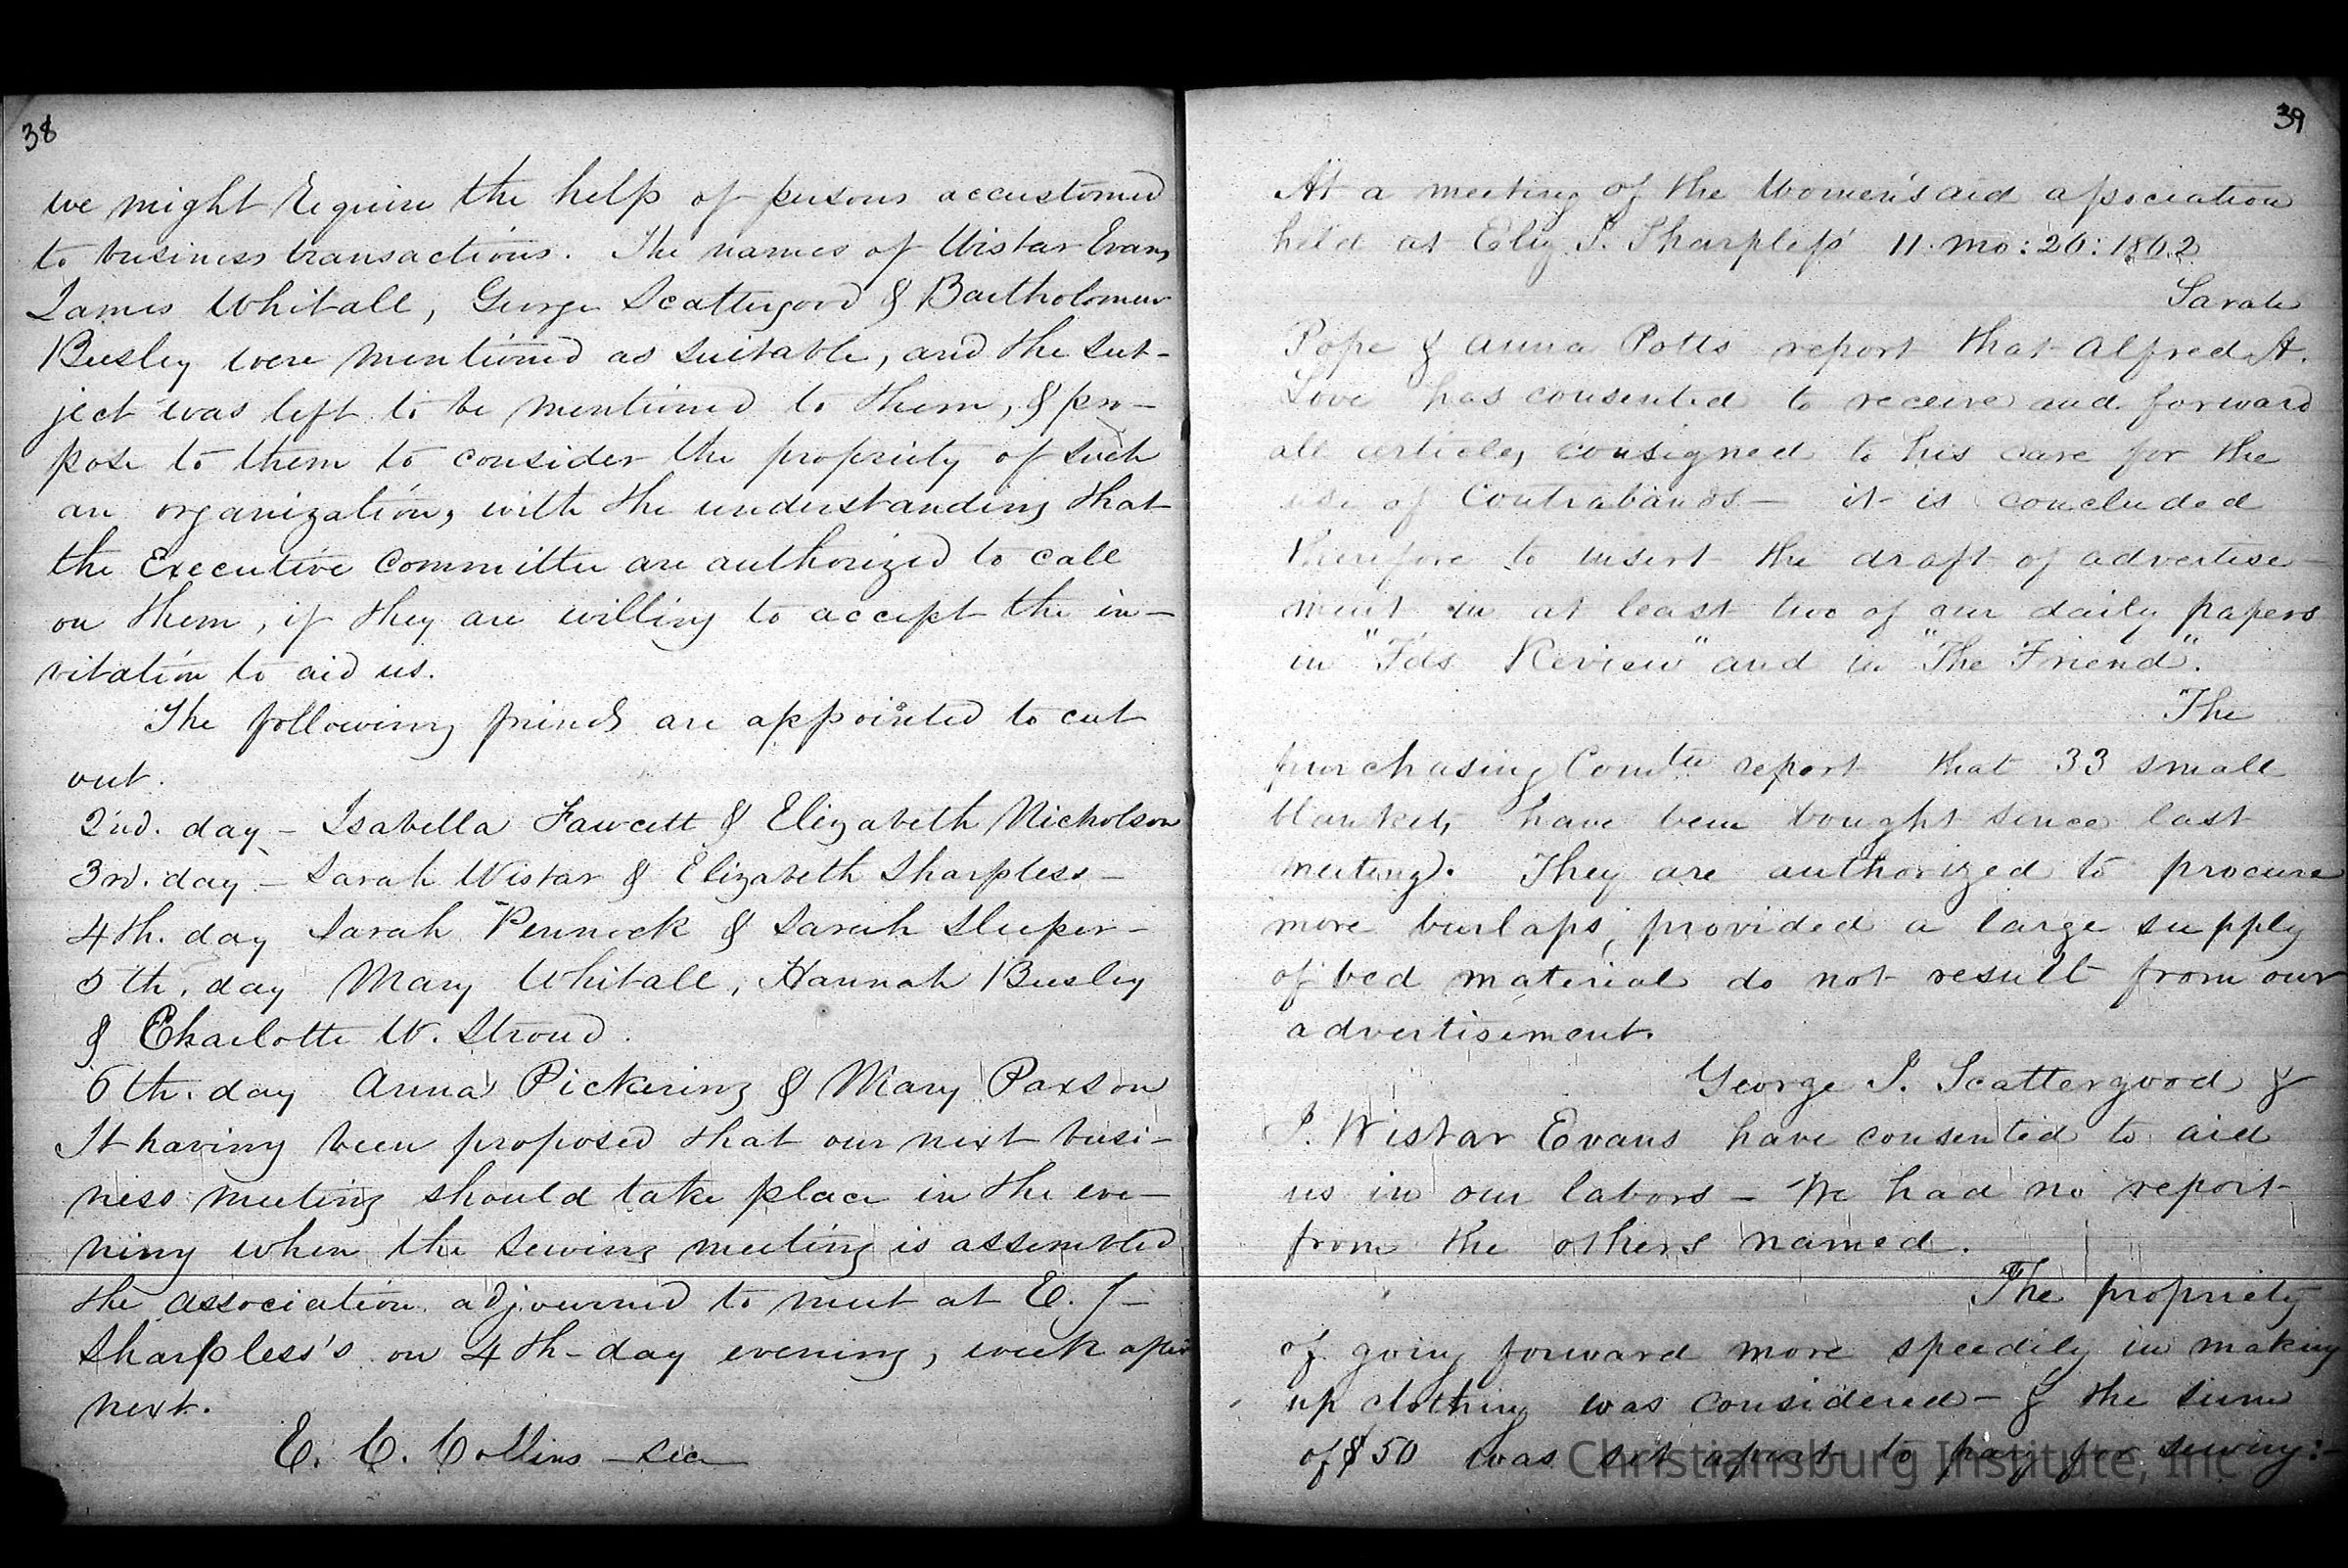 38
we might require the help of persons accustomed
to business transactions. The names of Wistar Evans
James Whitall, George Scattergood & Bartholomew
Beesley were mentioned as suitable, and the sub-
ject was left to be mentioned to them, & pro-
pose to them to consider the propriety of such
an organization, with the understanding that
the Executive Committee are authorized to call
on them, if they are willing to accept the in-
vitation to aid us.
The following friends are appointed to cut
out.
2nd. day - Isabella Fawcett & Elizabeth Nicholson
3rd. day - Sarah Wistar & Elizabeth Sharpless -
4th. day Sarah Pennock & Sarah Sleeper -
5th. day Mary Whitall, Hannah Beesley
& Charlotte W. Stroud.
6th. day Anna Pickering & Mary Paxson
It having been proposed that our next busi-
ness meeting should take place in the eve-
ning when the sewing meeting is assembled
the association adjourned to meet at E. J-
Sharpless's on 4th-day evening, week after
next.
E. C. Collins - sec
39
At a meeting of the Women's aid association
held at Eliz J. Sharpless' 11. mo: 26: 1862
Sarah
Pope & Anna Potts report that Alfred H.
Love has consented to receive and forward
all articles consigned to his care for the
use of Contrabands - it is concluded
therefore to insert the draft of advertise-
ment in at least two of our daily papers
in "Fds Review" and in "The Friend".
The
purchasing Comtee report that 33 small
blankets have been bought since last
meeting. They are authorized to procure
more burlaps, provided a large supply
of bed material do not result from our
advertisement.
George J. Scattergood &
J. Wistar Evans have consented to aid
us in our labors - We had no report
from the others named.
The propriety
of going forward more speedily in making
up clothing was considered - & the sum
of $50 was set apart to pay for sewing:-
Christiansburg Institute, Inc